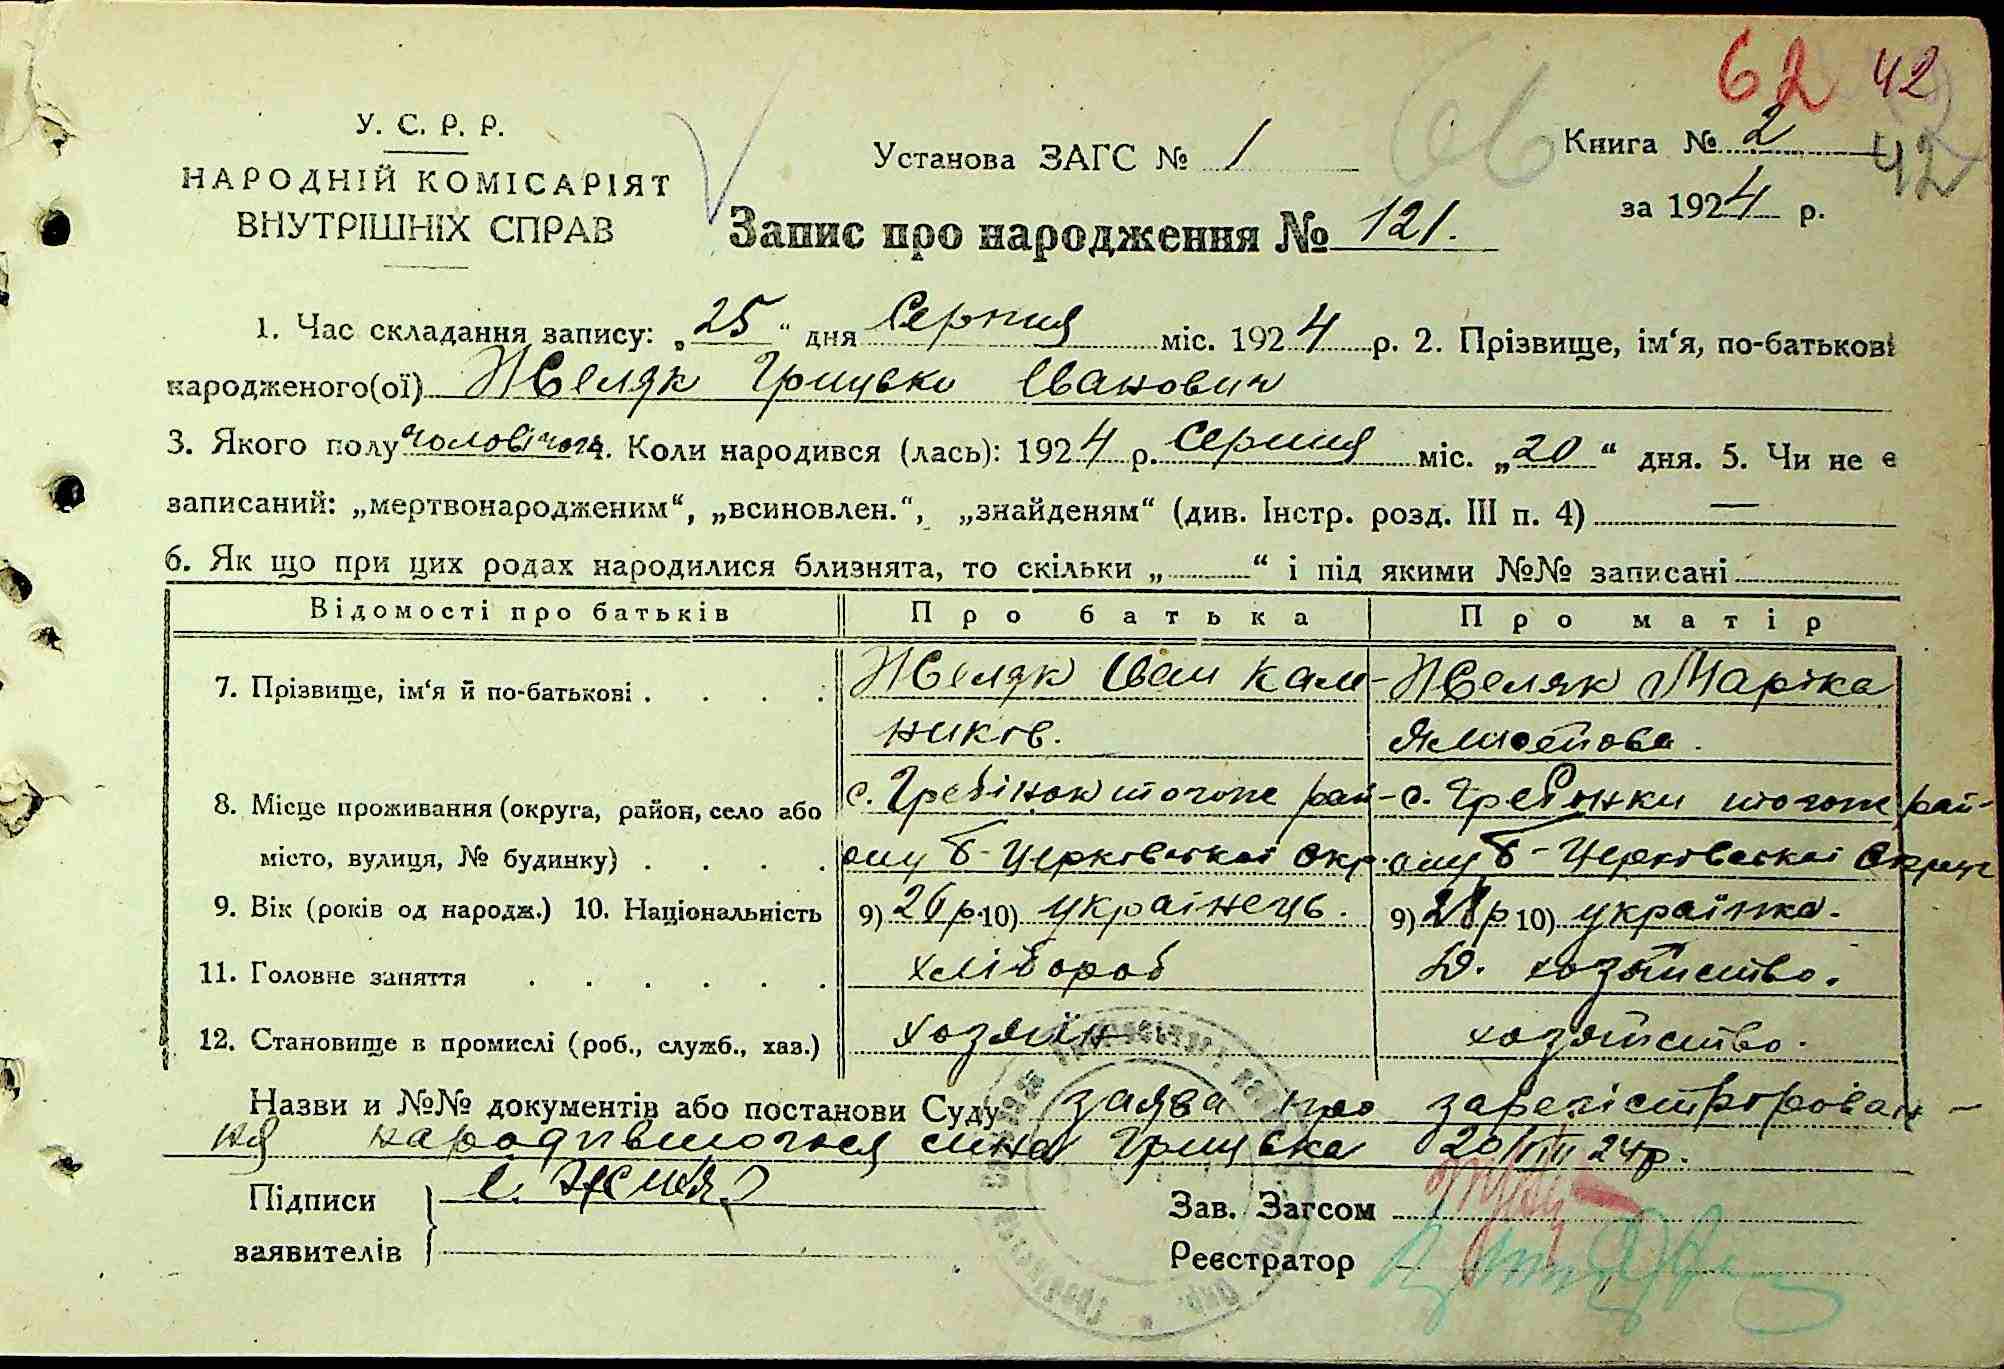 62 42
У. С. Р. Р.
НАРОДНІЙ КОМІСАРІЯТ
ВНУТРІШНІХ СПРАВ
Установа ЗАГС № 1
66
Книга № 2
42
за 1924 р.
Запис про народження № 121.
1. Час складання запису: „25“ дня Серпня міс. 1924 р. 2. Прізвище, ім‘я, по-батькові
народженого(ої) Желяк Грицько Іванович
3. Якого полу чоловічого 4. Коли народився (лась): 1924 р. Серпня міс. „20“ дня. 5. Чи не є
записаний: „мертвонародженим“, „всиновлен.“, „знайденям“ (див. Інстр. розд. III п. 4) —
6. Як що при цих родах народилися близнята, то скільки „ “ і під якими №№ записані
Відомості про батьків Про батька Про матір
7. Прізвище, ім‘я й по-батькові . . . . Желяк Іван Кали- Желяк Марійка
ников.
8. Місце проживання (округа, район, село або с. Гребінок того же рай- с. Гребінки того же рай-
місто, вулиця, № будинку) . . . . ону Б-Церківської Окр. ону Б-Церківської Округи
9. Вік (років од народж.) 10. Національність 9) 26 р. 10) українець. 9) р 10) українка.
11. Головне заняття . . . . . . хлібороб Д. хозяйство.
12. Становище в промислі (роб., служб., хаз.) хозяїн хозяйство.
Назви и №№ документів або постанови Суду заява про зарегістрірован-
ня народившогося сина Грицька 20/VIII 24р.
Підписи
заявителів
Зав. Загсом
Реєстратор